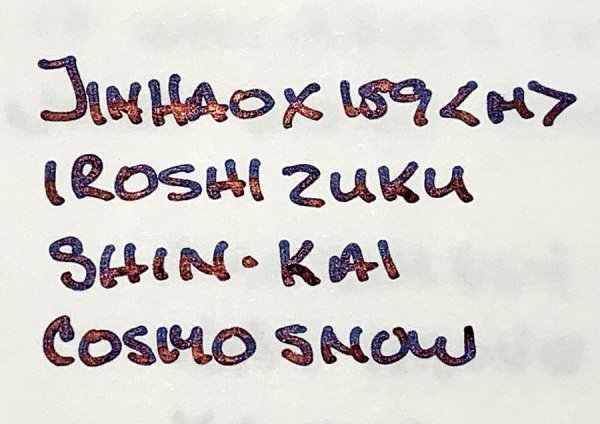 JINHAO X 159 <M>
IROSHI ZUKU
SHIN·KAI
COSMO SNOW